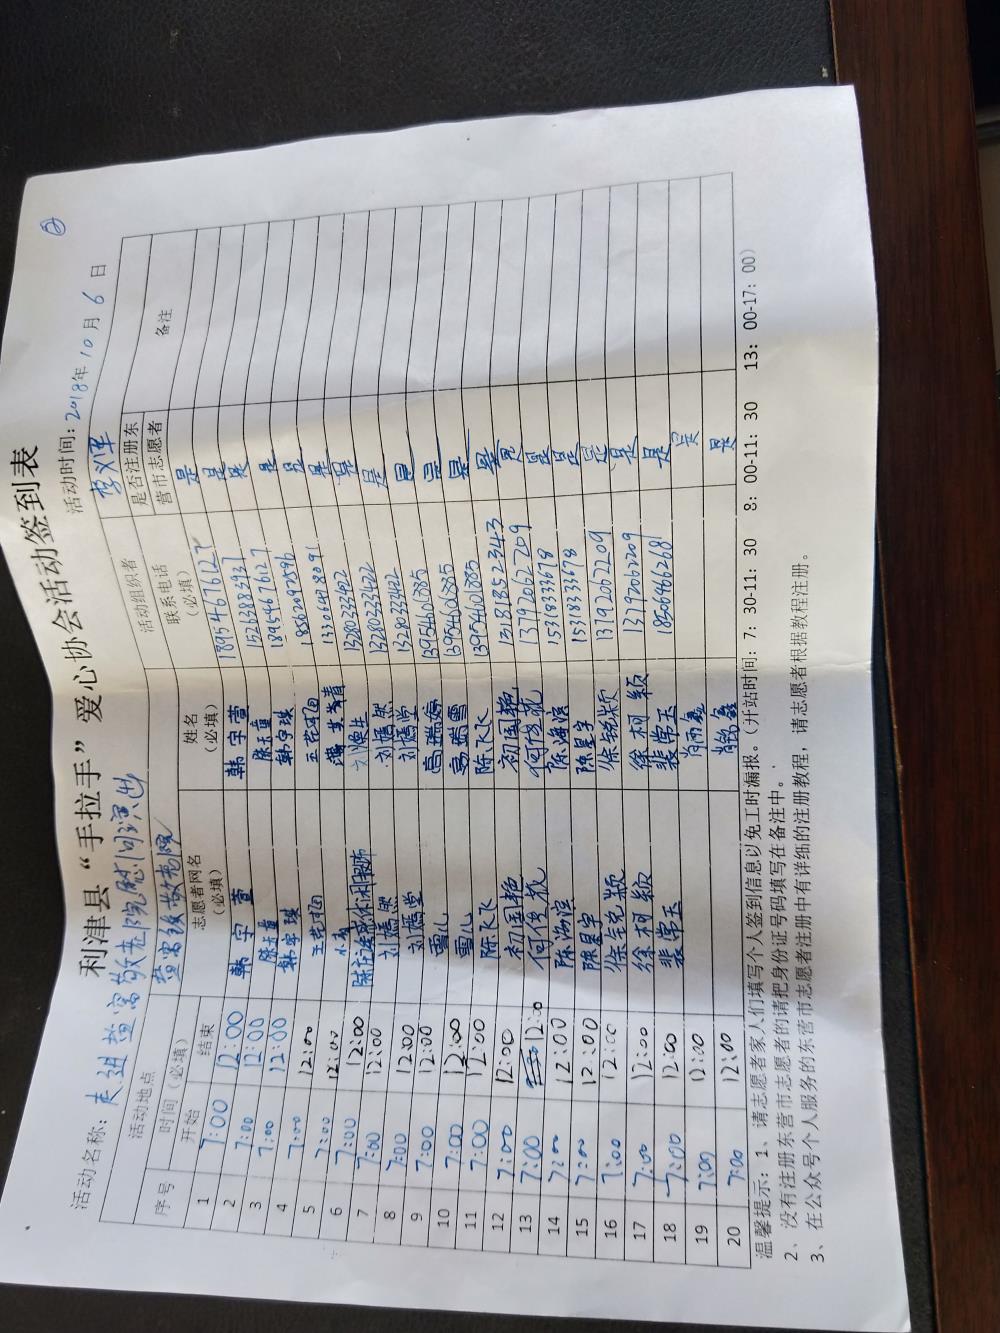 ②
利津县“手拉手”爱心协会活动签到表
活动名称：走进盐窝敬老院慰问演出 活动时间：2018年10月6日
活动地点 盐窝镇敬老院 活动组织者 李义军
序号 时间（必填） 志愿者网名（必填） 姓名（必填） 联系电话（必填） 是否注册东营市志愿者 备注
开始 结束
1 7:00 12:00 韩宇萱 韩宇萱 18954676127 是
2 7:00 12:00 陈玉真 陈玉真 15263883937 是
3 7:00 12:00 韩宇琪 韩宇琪 13954676127 是
4 7:00 12:00 18562097896 是
5 7:00 12:00 13306408091 是
6 7:00 12:00 13280333422 是
7 7:00 12:00 刘嫣然 刘嫣然 13280333422 是
8 7:00 12:00 刘嫣堂 刘嫣堂 13280333422 是
9 7:00 12:00 雪儿 高瑞婷 13954601885 是
10 7:00 12:00 雪儿 高瑞雪 13954601885 是
11 7:00 12:00 陈飞飞 陈飞飞 13954601885 是
12 7:00 12:00 初国艳 初国艳 13181352343 是
13 7:00 12:00 何俊花 何俊花 13792062209 是
14 7:00 12:00 陈海滨 陈海滨 15318333678 是
15 7:00 12:00 陈星宇 陈星宇 15318333678 是
16 7:00 12:00 徐克颖 徐克颖 13792062209 是
17 7:00 12:00 徐柯颖 徐柯颖 13792062209 是
18 7:00 12:00 裴常玉 裴常玉 18505466268 是
19 7:00 12:00 是
20 7:00 12:00 是
温馨提示：1、请志愿者家人们填写个人签到信息以免工时漏报。（开站时间：7：30-11：30 8：00-11：30 13：00-17：00）
2、没有注册东营市志愿者的请把身份证号码填写在备注中。
3、在公众号个人服务的东营市志愿者注册中有详细的注册教程，请志愿者根据教程注册。